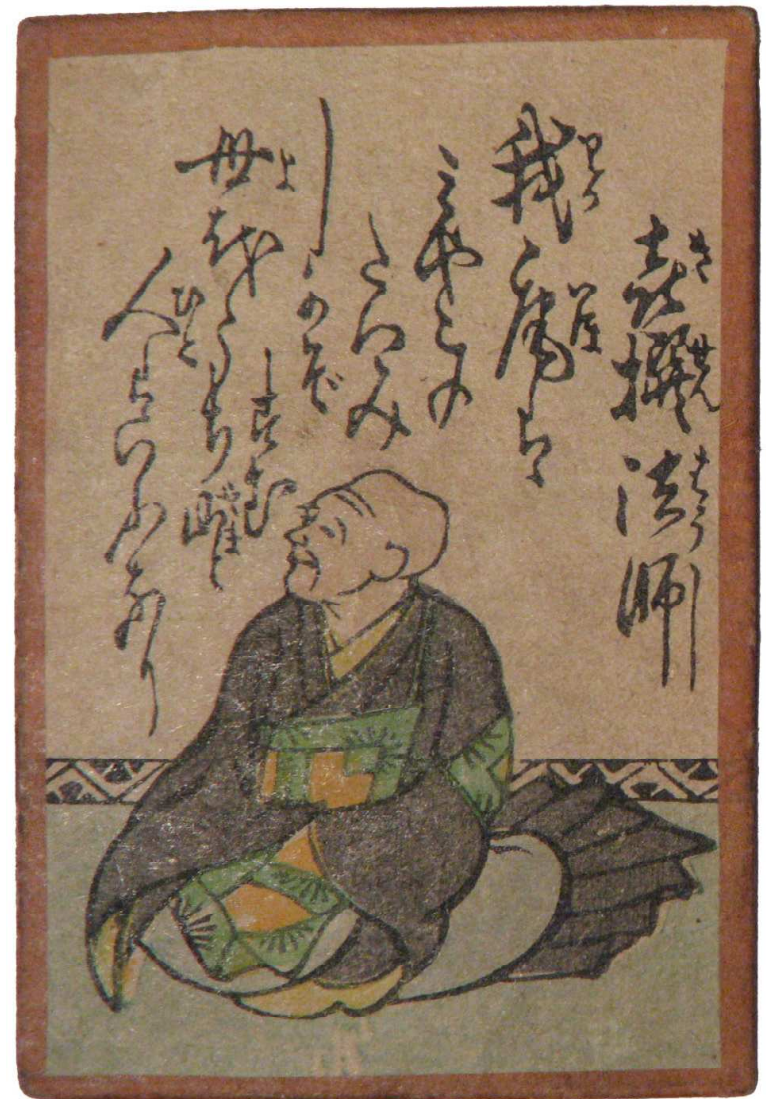 喜撰法師
我庵は
みやこの
たつみ
しかぞ
すむ
世をうぢ山と
人はいふなり